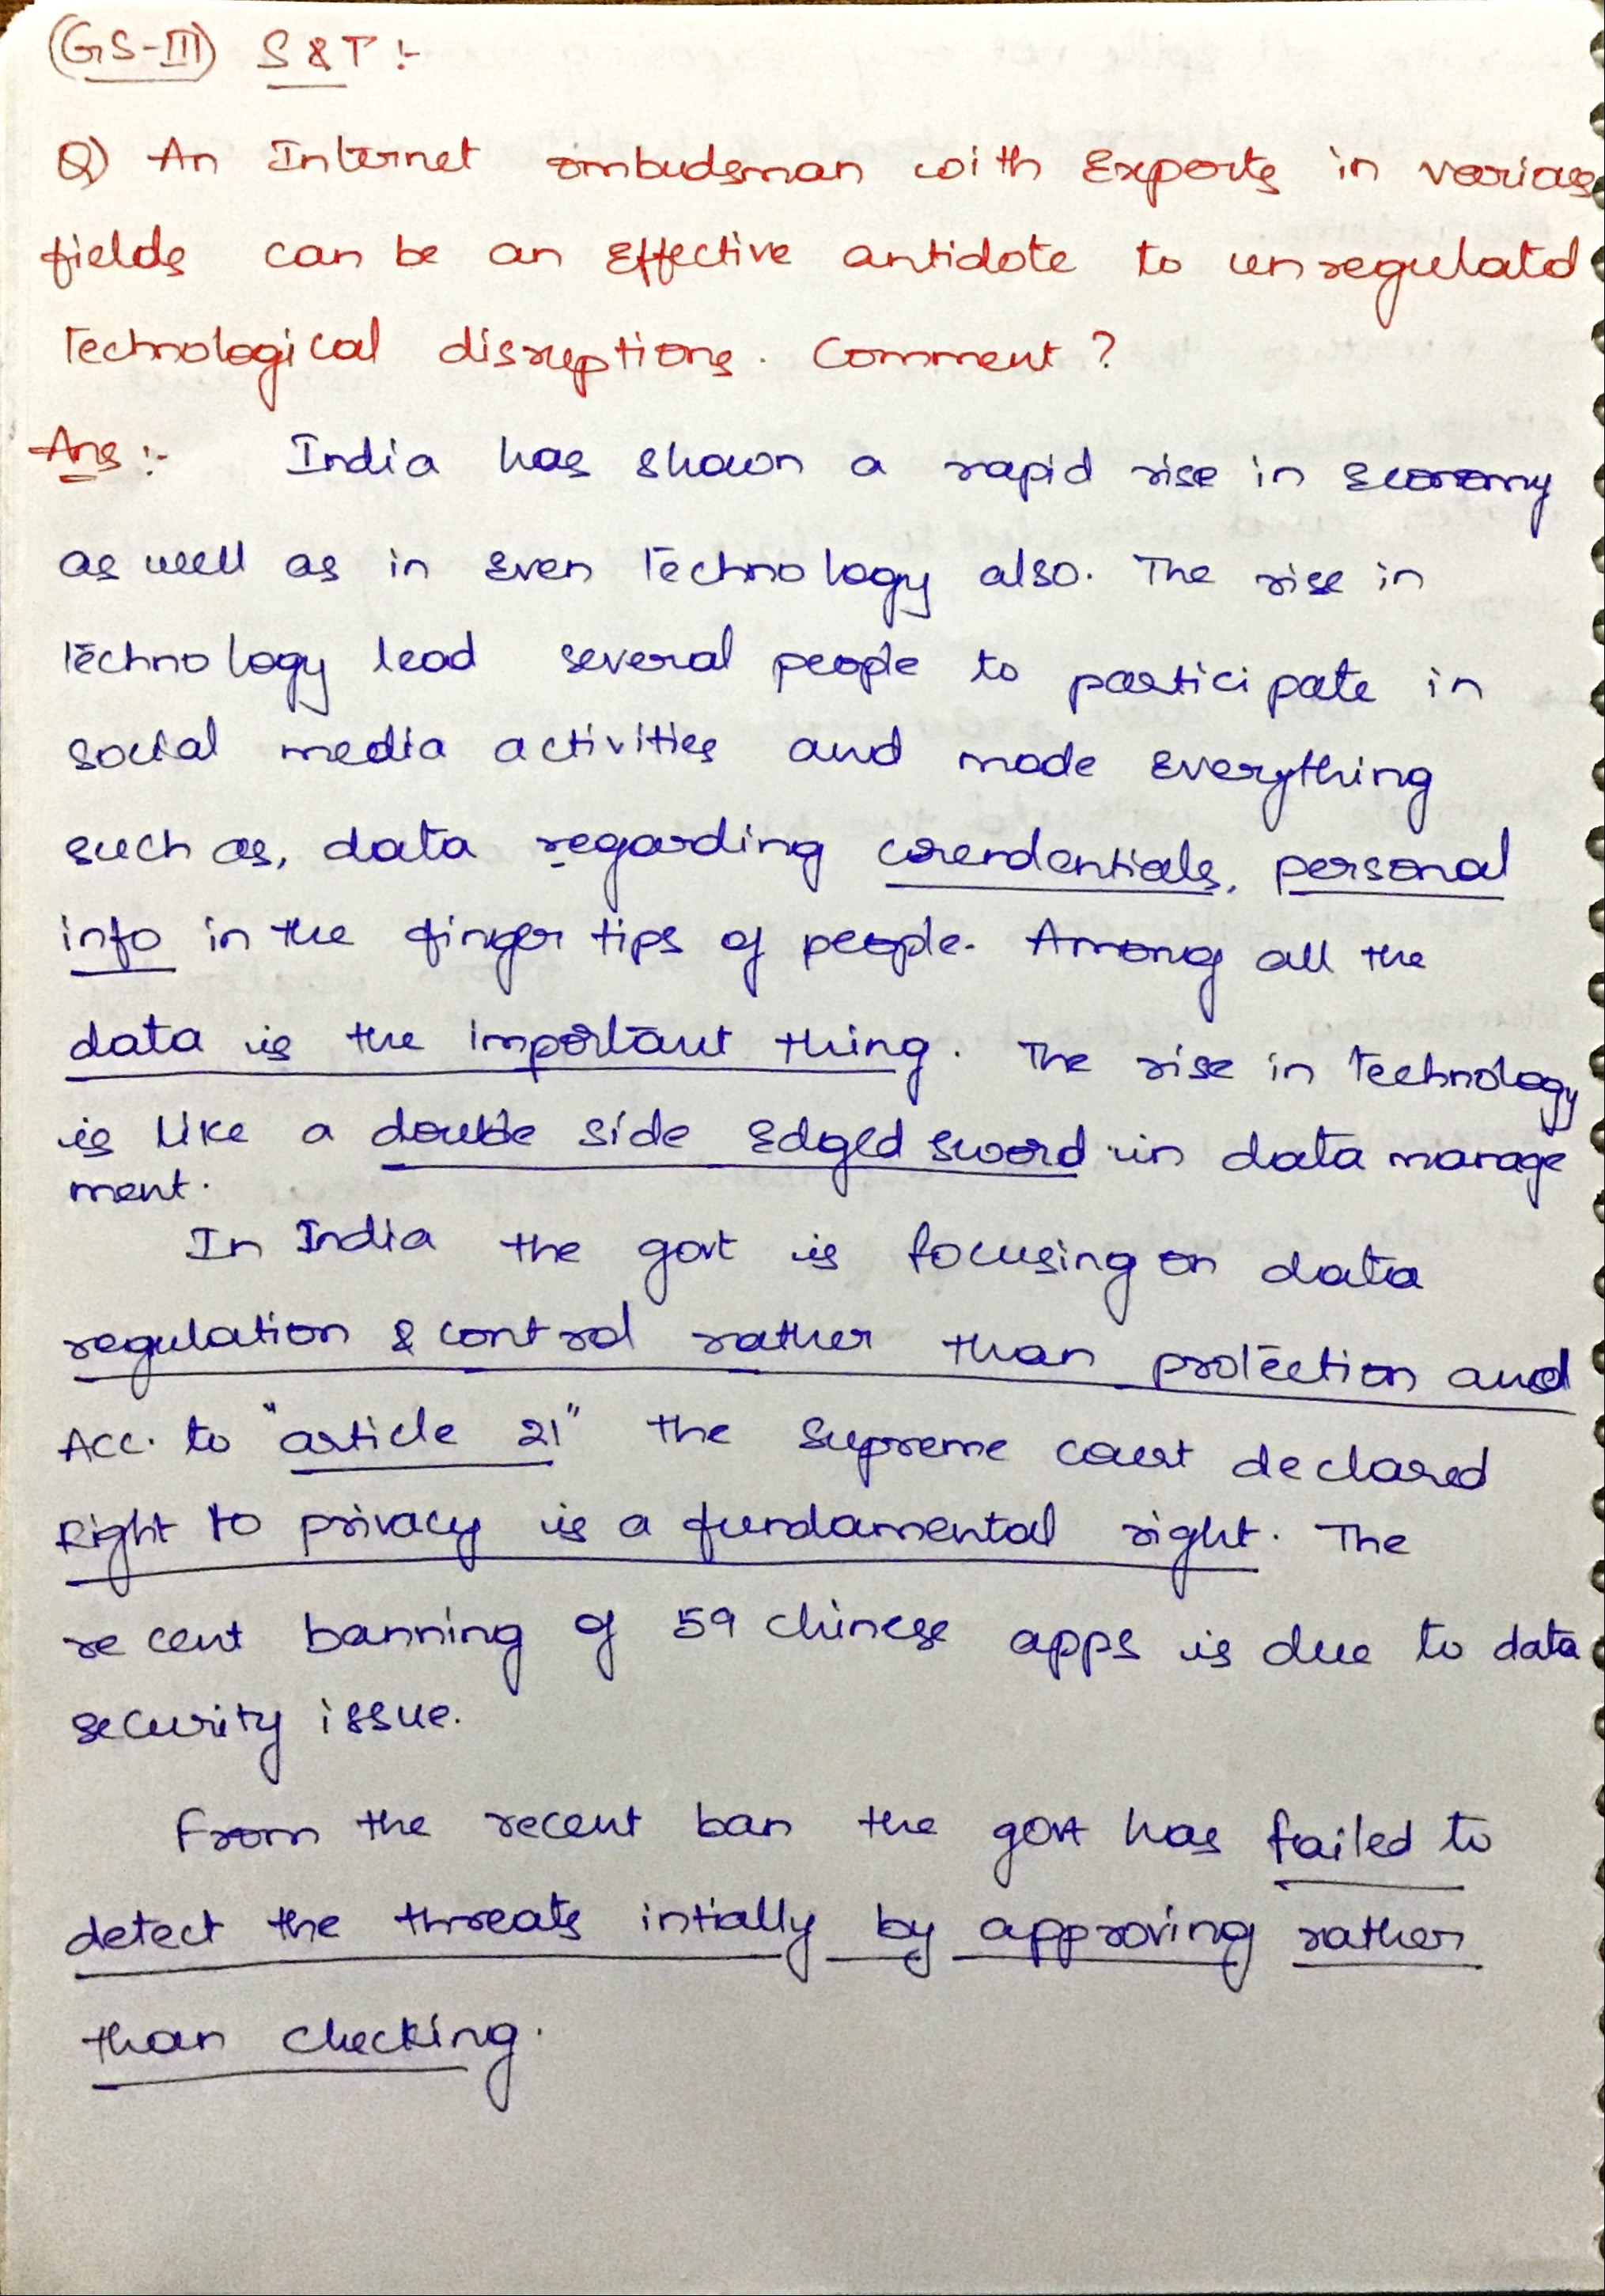 (GS-III) S & T :-
Q) An Internet ombudsman with Experts in various
fields can be an Effective antidote to unregulated
Technological disruptions. Comment ?
Ans :- India has shown a rapid rise in Economy
as well as in Even Technology also. The rise in
Technology lead several people to participate in
social media activities and made Everything
such as, data regarding crerdentials, personal
info in the finger tips of people. Among all the
data is the important thing. The rise in Technology
is like a double side Edged sword in data manage
ment.
In India the govt is focusing on data
regulation & control rather than protection and
Acc. to "article 21" the Supreme court declared
Right to privacy is a fundamental right. The
recent banning of 59 chinese apps is due to data
security issue.
From the recent ban the govt has failed to
detect the threats intially by approving rather
than checking.